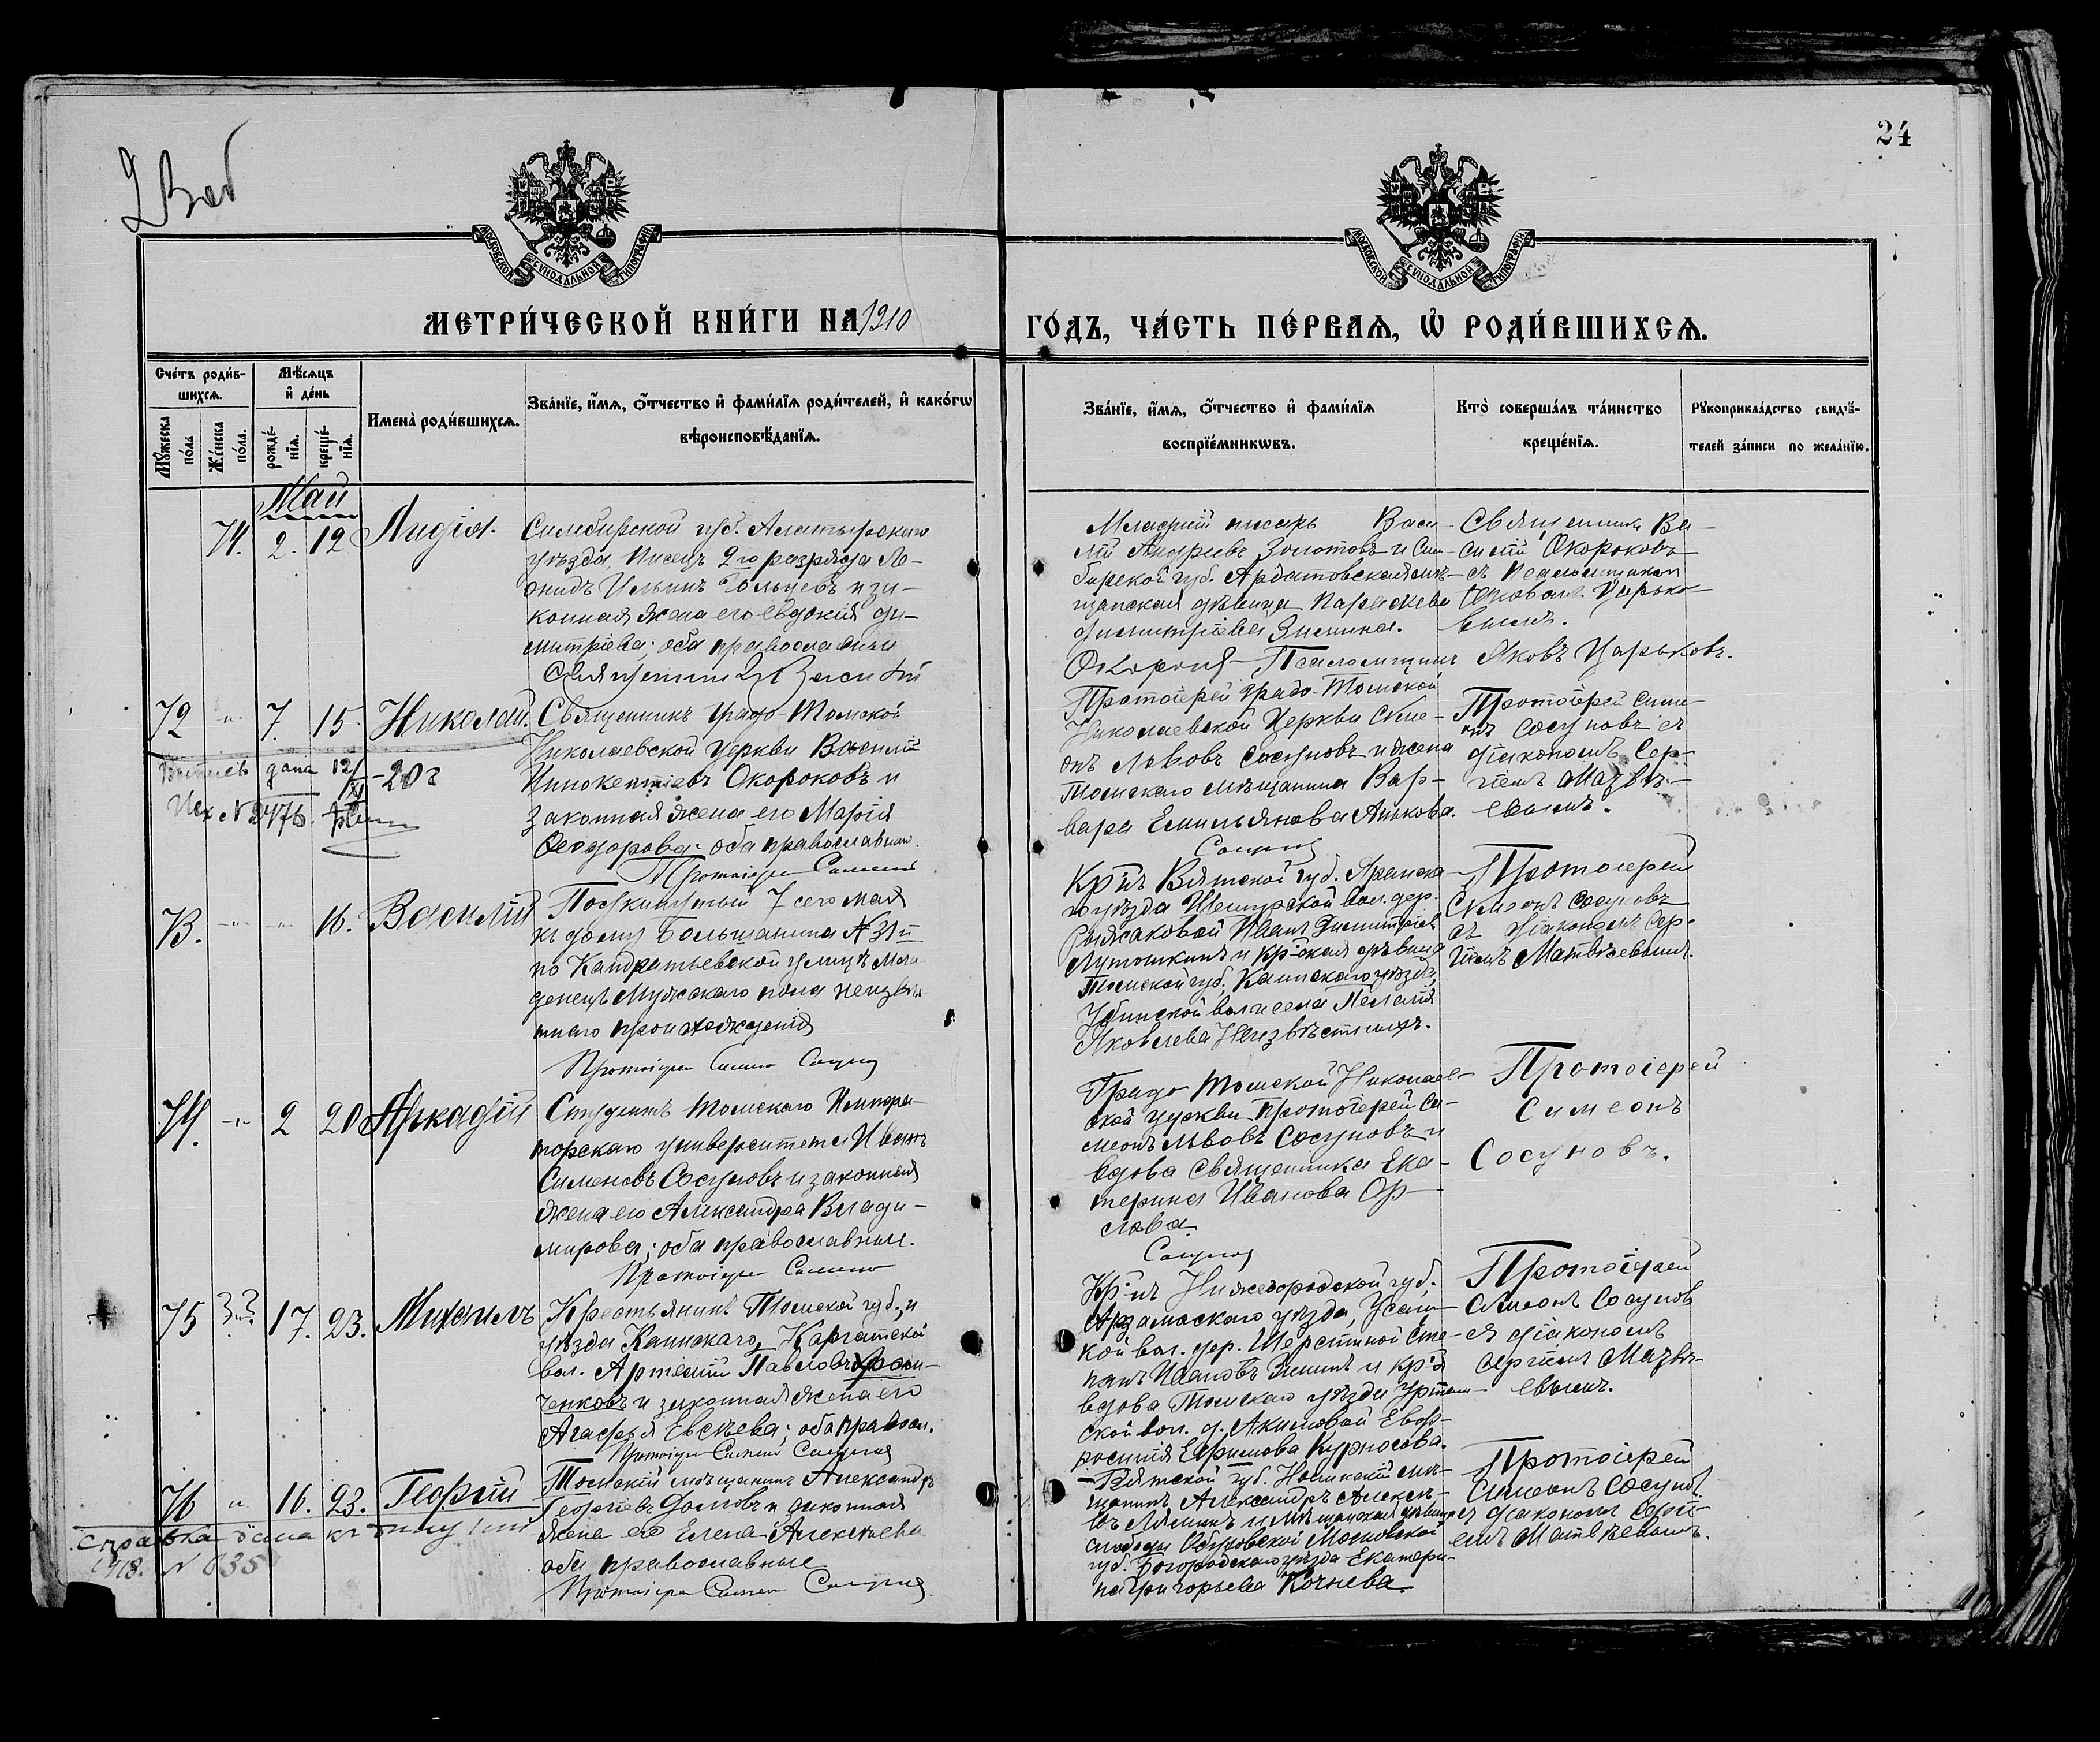 24
МОСКОВСКОЙ СѴНОДАЛЬНОЙ ТИПОГРАФІИ
МОСКОВСКОЙ СѴНОДАЛЬНОЙ ТИПОГРАФІИ
МЕТРИ́ЧЕСКОЙ КНИ́ГИ НА 1910
ГО́ДЪ, ЧА́СТЬ ПЕ́РВАѦ, Ѡ҆ РОДИ́ВШИХСѦ.
Сче́тъ роди́в-
шихсѧ.
Мѹ́жеска по́ла
Же́нска по́ла.
Мѣ́сѧцъ
и҆ де́нь
рожде́-
нїѧ.
креще́-
нїѧ.
Имена̀ роди́вшихсѧ.
Зва́нїе, и҆́мѧ, ѻ҆́тчество и҆ фами́лїѧ роди́телей, и҆ како́гѡ
вѣроисповѣ́данїѧ.
Зва́нїе, и҆́мѧ, ѻ҆́тчество и҆ фами́лїѧ
воспрїе́мникѡвъ.
Кто̀ соверша́лъ та́инство
креще́нїѧ.
Рѹкоприкла́дство свидѣ́-
телей за́писи по жела́нїю.
Май
74. 2. 12 Лидія.
Симбирской губ. Алатырскаго
уѣзда, писецъ 2го разряда Ле-
онидъ Ильинъ Гольцевъ и за-
конная жена его Евдокія Ди-
митріева; оба православные
Священникъ Василій
Младшій писарь Васи-
лій Андреевъ Золотовъ и Сим-
бирской губ. Ардатовская мѣ-
щанская дѣвица Параскева
Димитріева Зимина.
Окороковъ Псаломщикъ Яковъ Царьковъ.
Священникъ Ва-
силій Окороковъ
съ псаломщикомъ
Яковомъ Царько-
вымъ.
72 " 7. 15. Николай.
Священникъ Градо-Томской
Николаевской церкви Василій
Инокентіевъ Окороковъ и
законная жена его Марія
Ѳеодорова; оба православные.
Протоіерей Симеонъ
дана 12/XI-20г
Исх. № 2476.
Протоіерей градо-Томской
Николаевской Церкви Симе-
онъ Львовъ Сосуновъ и жена
Томскаго мѣщанина Вар-
вара Емильянова Анькова.
Сосуновъ
Протоіерей Симе-
онъ Сосуновъ съ
діакономъ Сер-
гіемъ Матвѣ-
евымъ.
73. " " 16. Василій
Подкинутый 7 сего мая
къ дому Большанина № 31й
по Кандратьевской улицѣ мла-
денецъ мужскаго пола неизвѣ-
тнаго происхожденія
Протоіерей Симеонъ Сосуновъ
Кр-нъ Вятской губ. Яранска-
го уѣзда вол. дер.
Иванъ Димитріевъ
Лутошкинъ и кр-ская дѣвица
Томской губ. Каинскаго уѣзда,
Убинской вол и села Пелагія
Яковлева Неизвѣстныхъ.
Протоіерей
Симеонъ Сосуновъ
съ діакономъ Сер-
гіемъ Матвѣевымъ.
74. " 2 20 Аркадій
Студентъ Томскаго Импера-
торскаго университета Иванъ
Сименовъ Сосуновъ и законная
жена его Александра Влади-
мирова; оба православные.
Протоіерей Симеонъ
Градо Томской Николаев-
ской церкви протоіерей Си-
меонъ Львовъ Сосуновъ и
вдова священника Ека-
терина Иванова Ор-
лова
Сосуновъ
Протоіерей
Симеонъ
Сосуновъ.
75 17. 23. Михаилъ
Крестьянинъ Томской губ., и
уѣзда Каинскаго, Каргатской
вол. Артемій Павловъ
ченковъ и законная жена его
Агафья Евсѣева; оба правосл.
Протоіерей Симеонъ Сосуновъ
Кр-нъ Нижегородской губ.,
Арзамаскаго уѣзда,
кой вол. дер. Шерстиной Сте-
панъ Ивановъ и кр-я
вдова Томскаго уѣзда Уртам-
ской вол. д. Акимовой Евф-
росинія Ефимова Курносова.
Протоіерей
Симеонъ Сосуновъ
съ діакономъ
Сергіемъ Матвѣ-
евымъ.
76 " 16. 23. Георгій
Томскій мѣщанинъ Александръ
Георгіевъ Фомовъ и законная
жена его Елена Алексѣева
оба православные
Протоіерей Симеонъ Сосуновъ
справка дана
1918. № 635
Вятской губ. Нолинскій мѣ-
щанинъ Александръ Алексѣ-
въ Ляминъ и мѣщанская дѣвица
слободы Московской
губ. Богородскаго уѣзда Екатери-
на Григорьева Кочнева.
Протоіерей
Симеонъ Сосуновъ
съ діакономъ Серги-
емъ Матвѣевымъ.